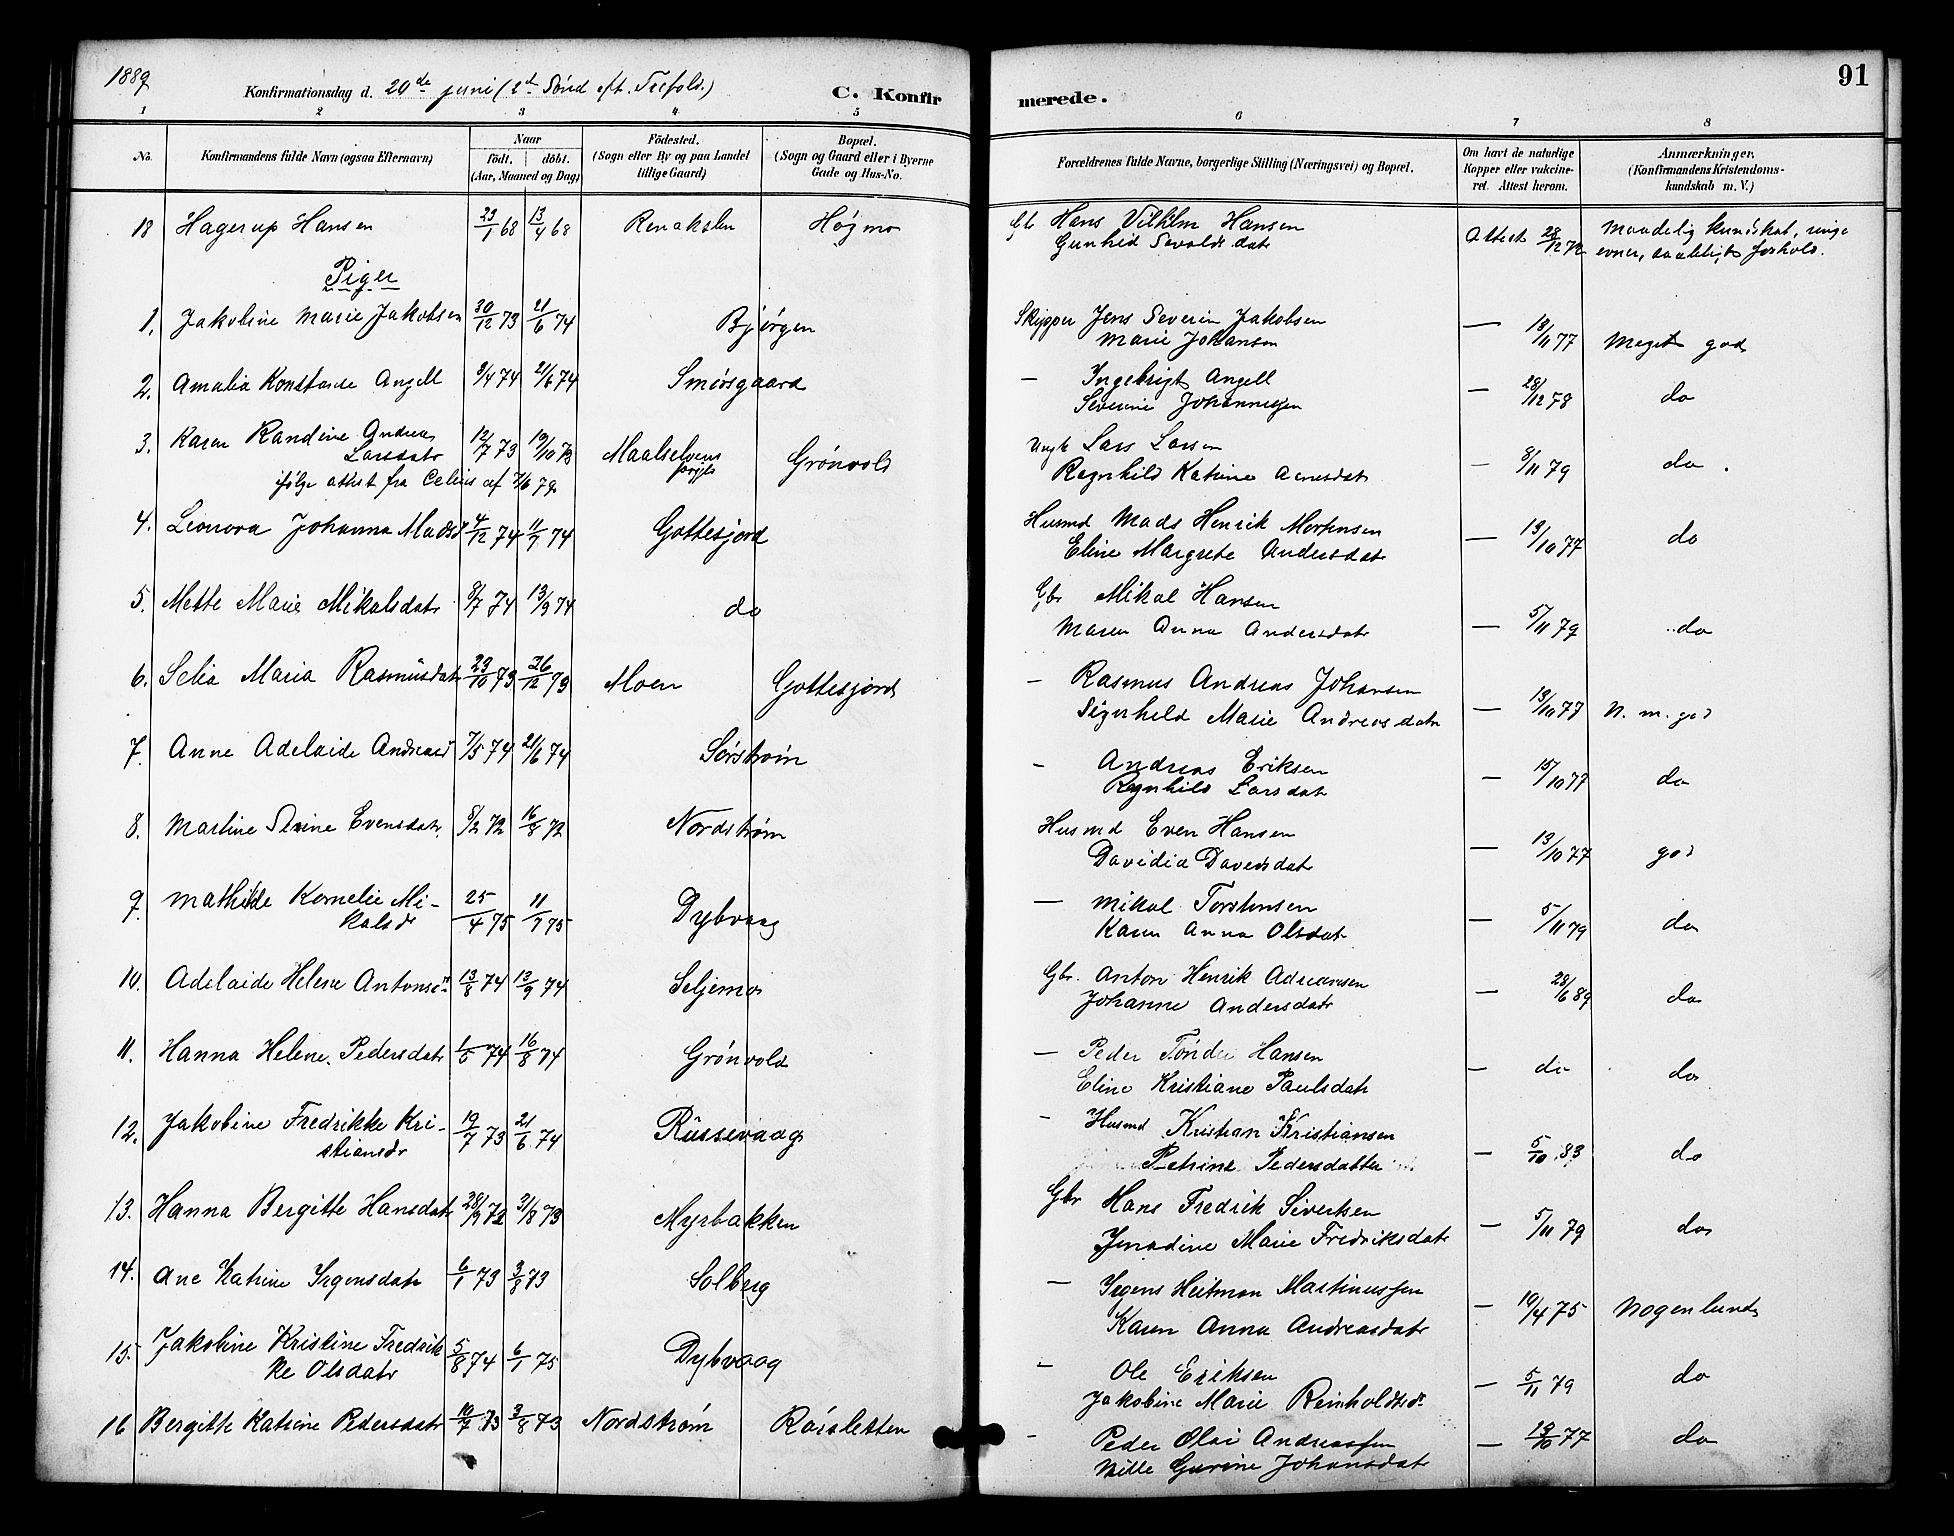 1889
Konfirmationsdag d. 29de juni (2d Sönd eft. Trefold.)
C. Konfirmerede.
91
1 2 3 4 5 6 7 8
No.
Konfirmandens fulde Navn (ogsaa Efternavn)
Naar
födt. döbt.
(Aar, Maaned og Dag)
Födested.
(Sogn eller By og paa Landet
tillige Gaard)
Bopæl.
(Sogn og Gaard eller i Byerne
Gade og Hus-No.
Forældrenes fulde Navne, borgerlige Stilling (Næringsvei) og Bopæl.
Om havt de naturlige
Kopper eller vakcine-
ret. Attest herom.
Anmærkninger.
(Konfirmandens Kristendoms-
kundskab m. V.)
18 Hagerup Hansen 23/1 68 13/4 68 Høgmo Gbr Hans Vilhelm Hansen
Attest 28/12 72 Maadelig kundskab, ringe
evner,
Piger
1. Jakobine Marie Jakobsen 30/12 73 21/6 74 Bjørgen Skipper Jens Severin Jakobsen
Marie Johansen — 13/11 77 Meget god
2. Amalia Konstanse Angell 9/4 74 21/6 74 Smørsgaard — Ingebrigt Angell
Severine Johannessen — 28/12 78 do
3. Karen Randine Andrea
Larsdatr 12/7 73 19/10 73 Maalselvens
Grönvold Lars Larsen
Ragnhild Katrine Arnesdatr — 8/11 79 do.
ifølge attest fra Celius af 7/6 79
4. Leonora Johanna Madsd 4/12 74 11/7 74 Gottesjord Husmd Mads Henrik Mortensen
Eline Margrete Andersdatr — 13/10 77 do
5. Mette Marie Mikalsdatr 8/7 74 13/9 74 do Gbr Mikal Hansen
Maren Anna Andersdatr — 5/11 79 do
6. Selia Maria Rasmusdatr 23/10 73 26/12 73 Moen Gottesjord — Rasmus Andreas Johansen
Sigerheld Marie Andreasdatr — 13/10 77 N. m. god
7. Anne Adelaide Andreasd 7/5 74 21/6 74 Sørstrøm — Andreas Eriksen
Ragnhild Larsdatr — 15/10 77 do
8. Martine Evensdatr 8/2 72 16/8 72 Nordstrøm Husmd Even Hansen
Davidia Davidsdat — 13/10 77 god
9. Mathilde Kornelie Mi-
kalsdr 25/4 75 11/7 75 Dybvaag — Mikal Torstensen
Karen Anna Olsdatr — 5/11 79 do
10. Adelaide Helene Antonsdr 13/8 74 13/9 74 Seljemo Gbr. Anton Henrik Adreansen
Johanne Andersdatr — 28/6 89 do
11. Hanna Helene Pedersdatr 1/5 74 16/8 74 Grönvold — Peder Tönder Hansen
Eline Kristiane Paulsdatr — do do
12. Jakobine Fredrikke Kri-
stiansdr 19/7 73 21/6 74 Russevaag — Husmd Kristian Kristiansen
Petrine Pedersdatter — 5/10 83 do
13. Hanna Bergitte Hansdatr 28/9 72 31/8 73 Myrbakken Gbr Hans Fredrik Sivertsen
Marie Fredriksdatr — 5/11 79 do
14. Ane Katrine Irgensdatr 6/1 73 3/8 73 Solberg — Irgens Heitman Martinussen
Karen Anna Andreasdatr — 19/4 75 Nogenlunde
15. Jakobine Kristine Fredrik-
ke Olsdatr 5/8 74 6/1 75 Dybvaag — Ole Eriksen
Jakobine Marie Reinholdtsdr — 5/11 79 do
16 Bergitte Katrine Pedersdatr 10/7 73 3/8 73 Nordstrøm — Peder Olai Andreassen
Gurine Johansdatr — 13/10 77 do